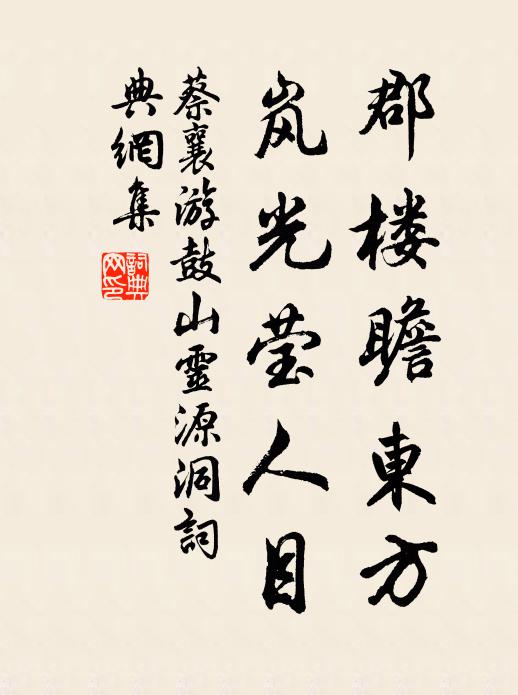 郡楼瞻東方
岚光莹人目
蔡襄游鼓山靈源洞詞
典網集
詞典网印